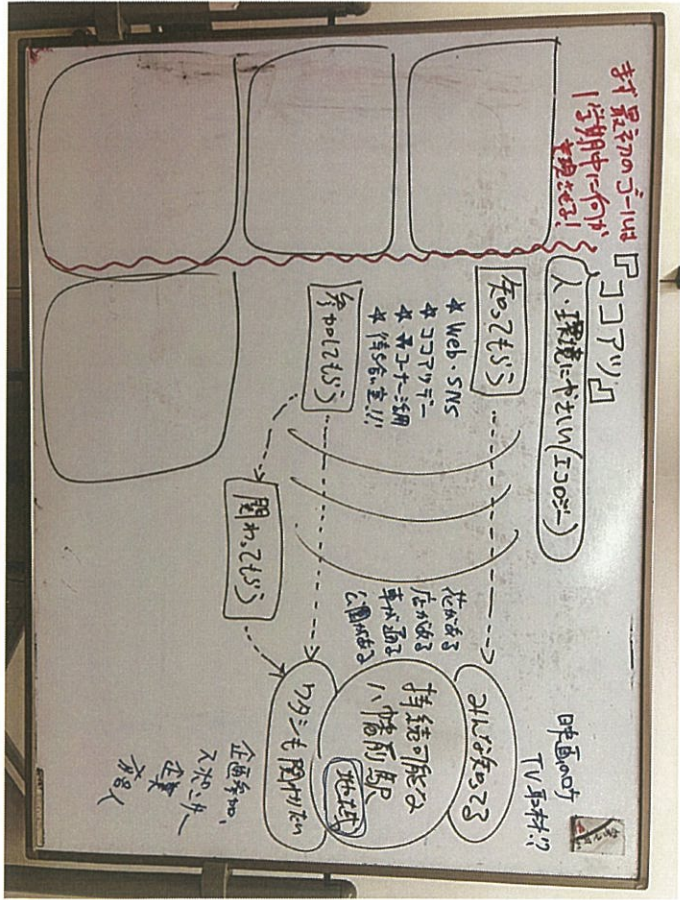 まず最初のゴールは
1学期中に何か
実現させる!
『ココアツ』
人・環境にやさしい(エコロジー)
知ってもらう
* Web・SNS
* ココアツデー
コーナー活用
* 待合い室!!!
参加してもらう
関わってもらう
花がある
店がある
車が通る
公園がある
みんな知ってる
持続可能な
八幡前駅
地域
ワタシも関わりたい
映画のロケ
TV取材!?
企画参加、
企業